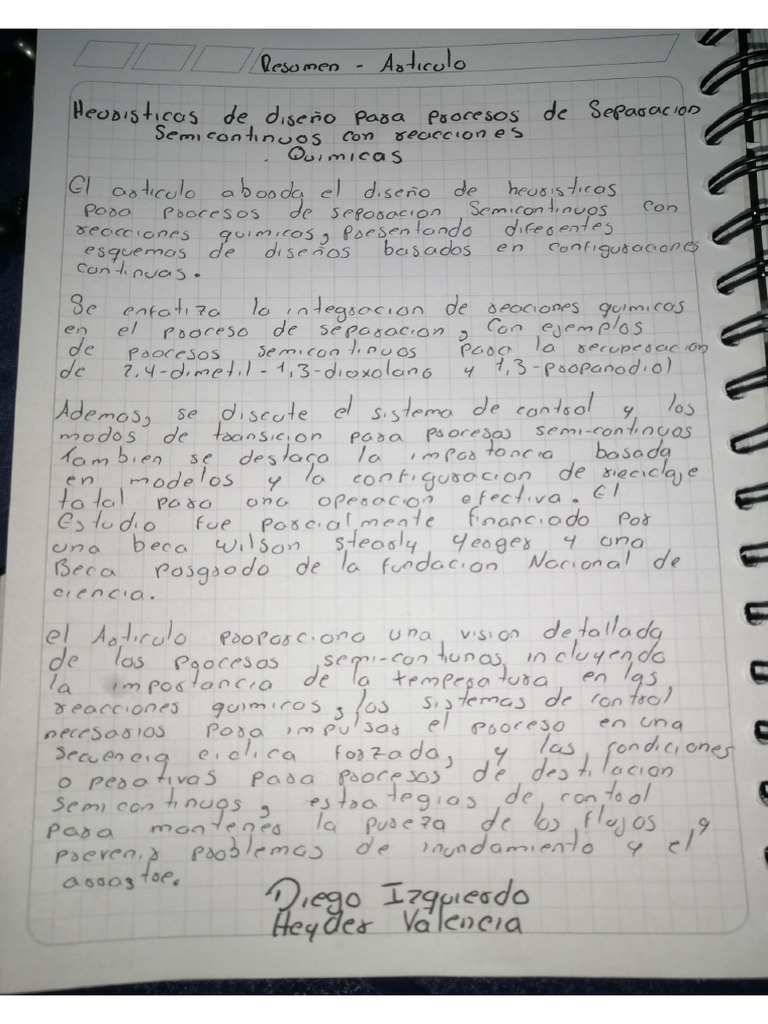 Resumen - Articulo
Heuristicas de diseño para procesos de Separacion
Semicontinuos con reacciones
Quimicas
El articulo aborda el diseño de heuristicas
para procesos de separacion Semicontinuos con
reacciones quimicas, presentando diferentes
esquemas de diseños basados en configuraciones
continuas.
Se enfatiza la integracion de reaciones quimicas
en el proceso de separacion, con ejemplos
de procesos semicontinuos para la recuperacion
de 2,4-dimetil-1,3-dioxolano y 1,3-propanodiol
Ademas, se discute el sistema de control y los
modos de transicion para procesas semi-continuos
Tambien se destaca la importancia basada
en modelos y la configuracion de reciclaje
total para una operacion efectiva. El
estudio fue parcialmente financiado por
una beca Wilson Stearly Yeager y una
Beca posgrado de la fundacion Nacional de
ciencia.
el Articulo proporciona una vision detallada
de los procesos semi-contiunos incluyendo
la importancia de la temperatura en las
reacciones quimicas, los sistemas de control
necesarios para impulsar el proceso en una
secuencia ciclica forzada, y las condiciones
operativas para procesos de destilacion
semicontinuos, estrategias de control
para mantener la pureza de los flujos y
prevenir problemas de inundamiento y el
arrastre.
Diego Izquierdo
Heyder Valencia